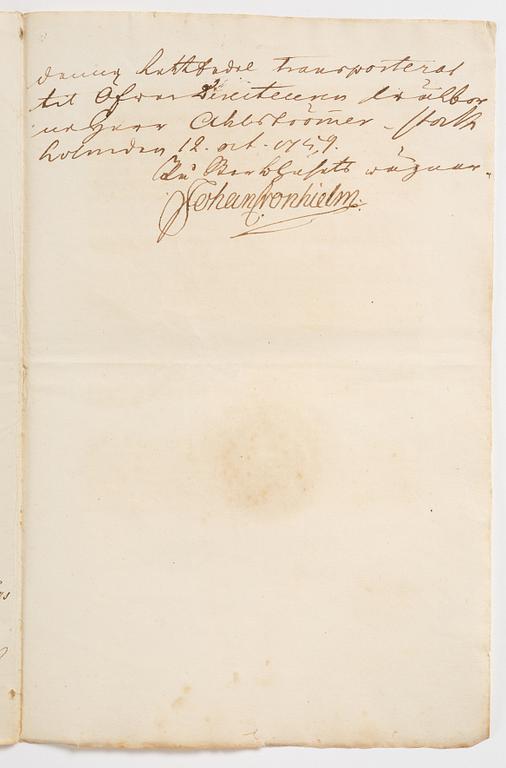 denna transporteras
til Öfwer Directeuren wälbor
ne Herr Ahlströmer - Stock
holm den 12. oct. 1759.
wägnar.
Johan Cronhielm.